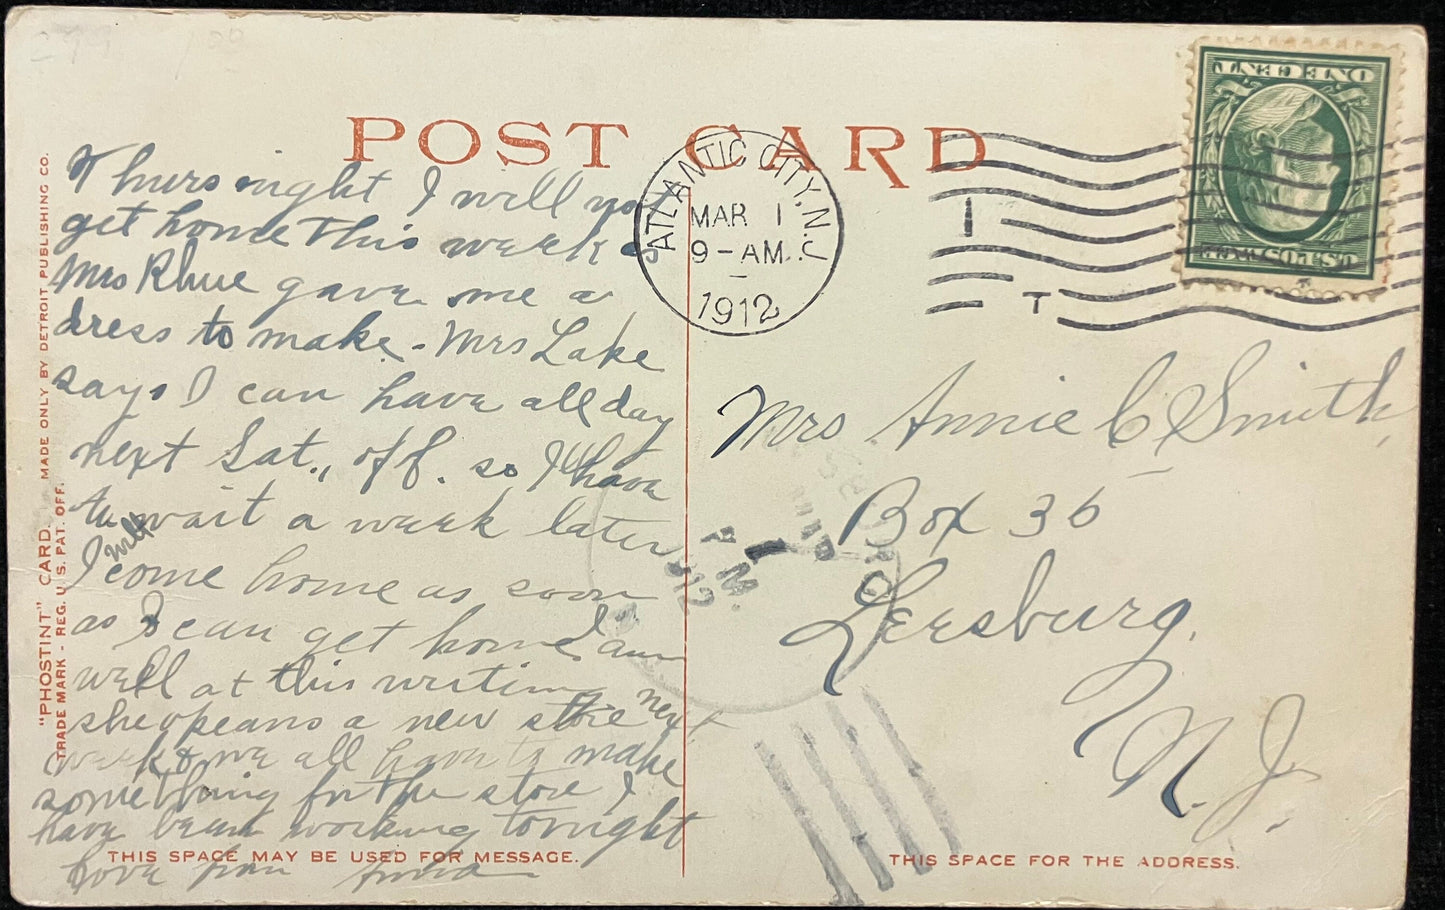 299 1.00
POST CARD
Thurs night I will not
get home this week as
Mrs Rhue gave me a
dress to make. Mrs Lake
says I can have all day
next Sat., off. so I'll have
to wait a week later
I will come home as soon
as I can get home. I am
well at this writing
she opens a new store next
week & we all have to make
something for the store I
have been working tonight
love from Anna
THIS SPACE MAY BE USED FOR MESSAGE.
"PHOSTINT" CARD. MADE ONLY BY DETROIT PUBLISHING CO.
TRADE MARK - REG. U.S. PAT. OFF.
ATLANTIC CITY, N.J.
MAR 1
9-AM.
1912
I
T
ONE CENT
U.S. POSTAGE
Mrs Annie C Smith,
Box 36
Leesburg,
N. J.
MAR
1
P M.
1912
THIS SPACE FOR THE ADDRESS.